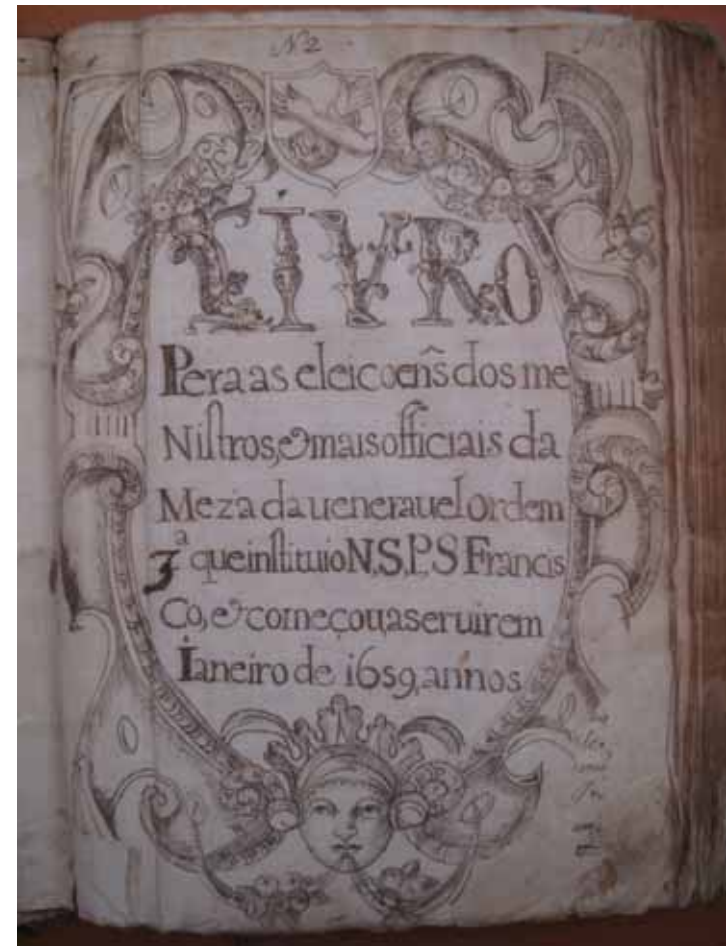 N2
LIVRO
Pera as eleicoens dos me
Nistros, & mais officiais da
Meza da ueneravel ordem
3ª que instituio N. S. P. S Francis
Co, & começou a seruir em
Ianeiro de 1659, annos